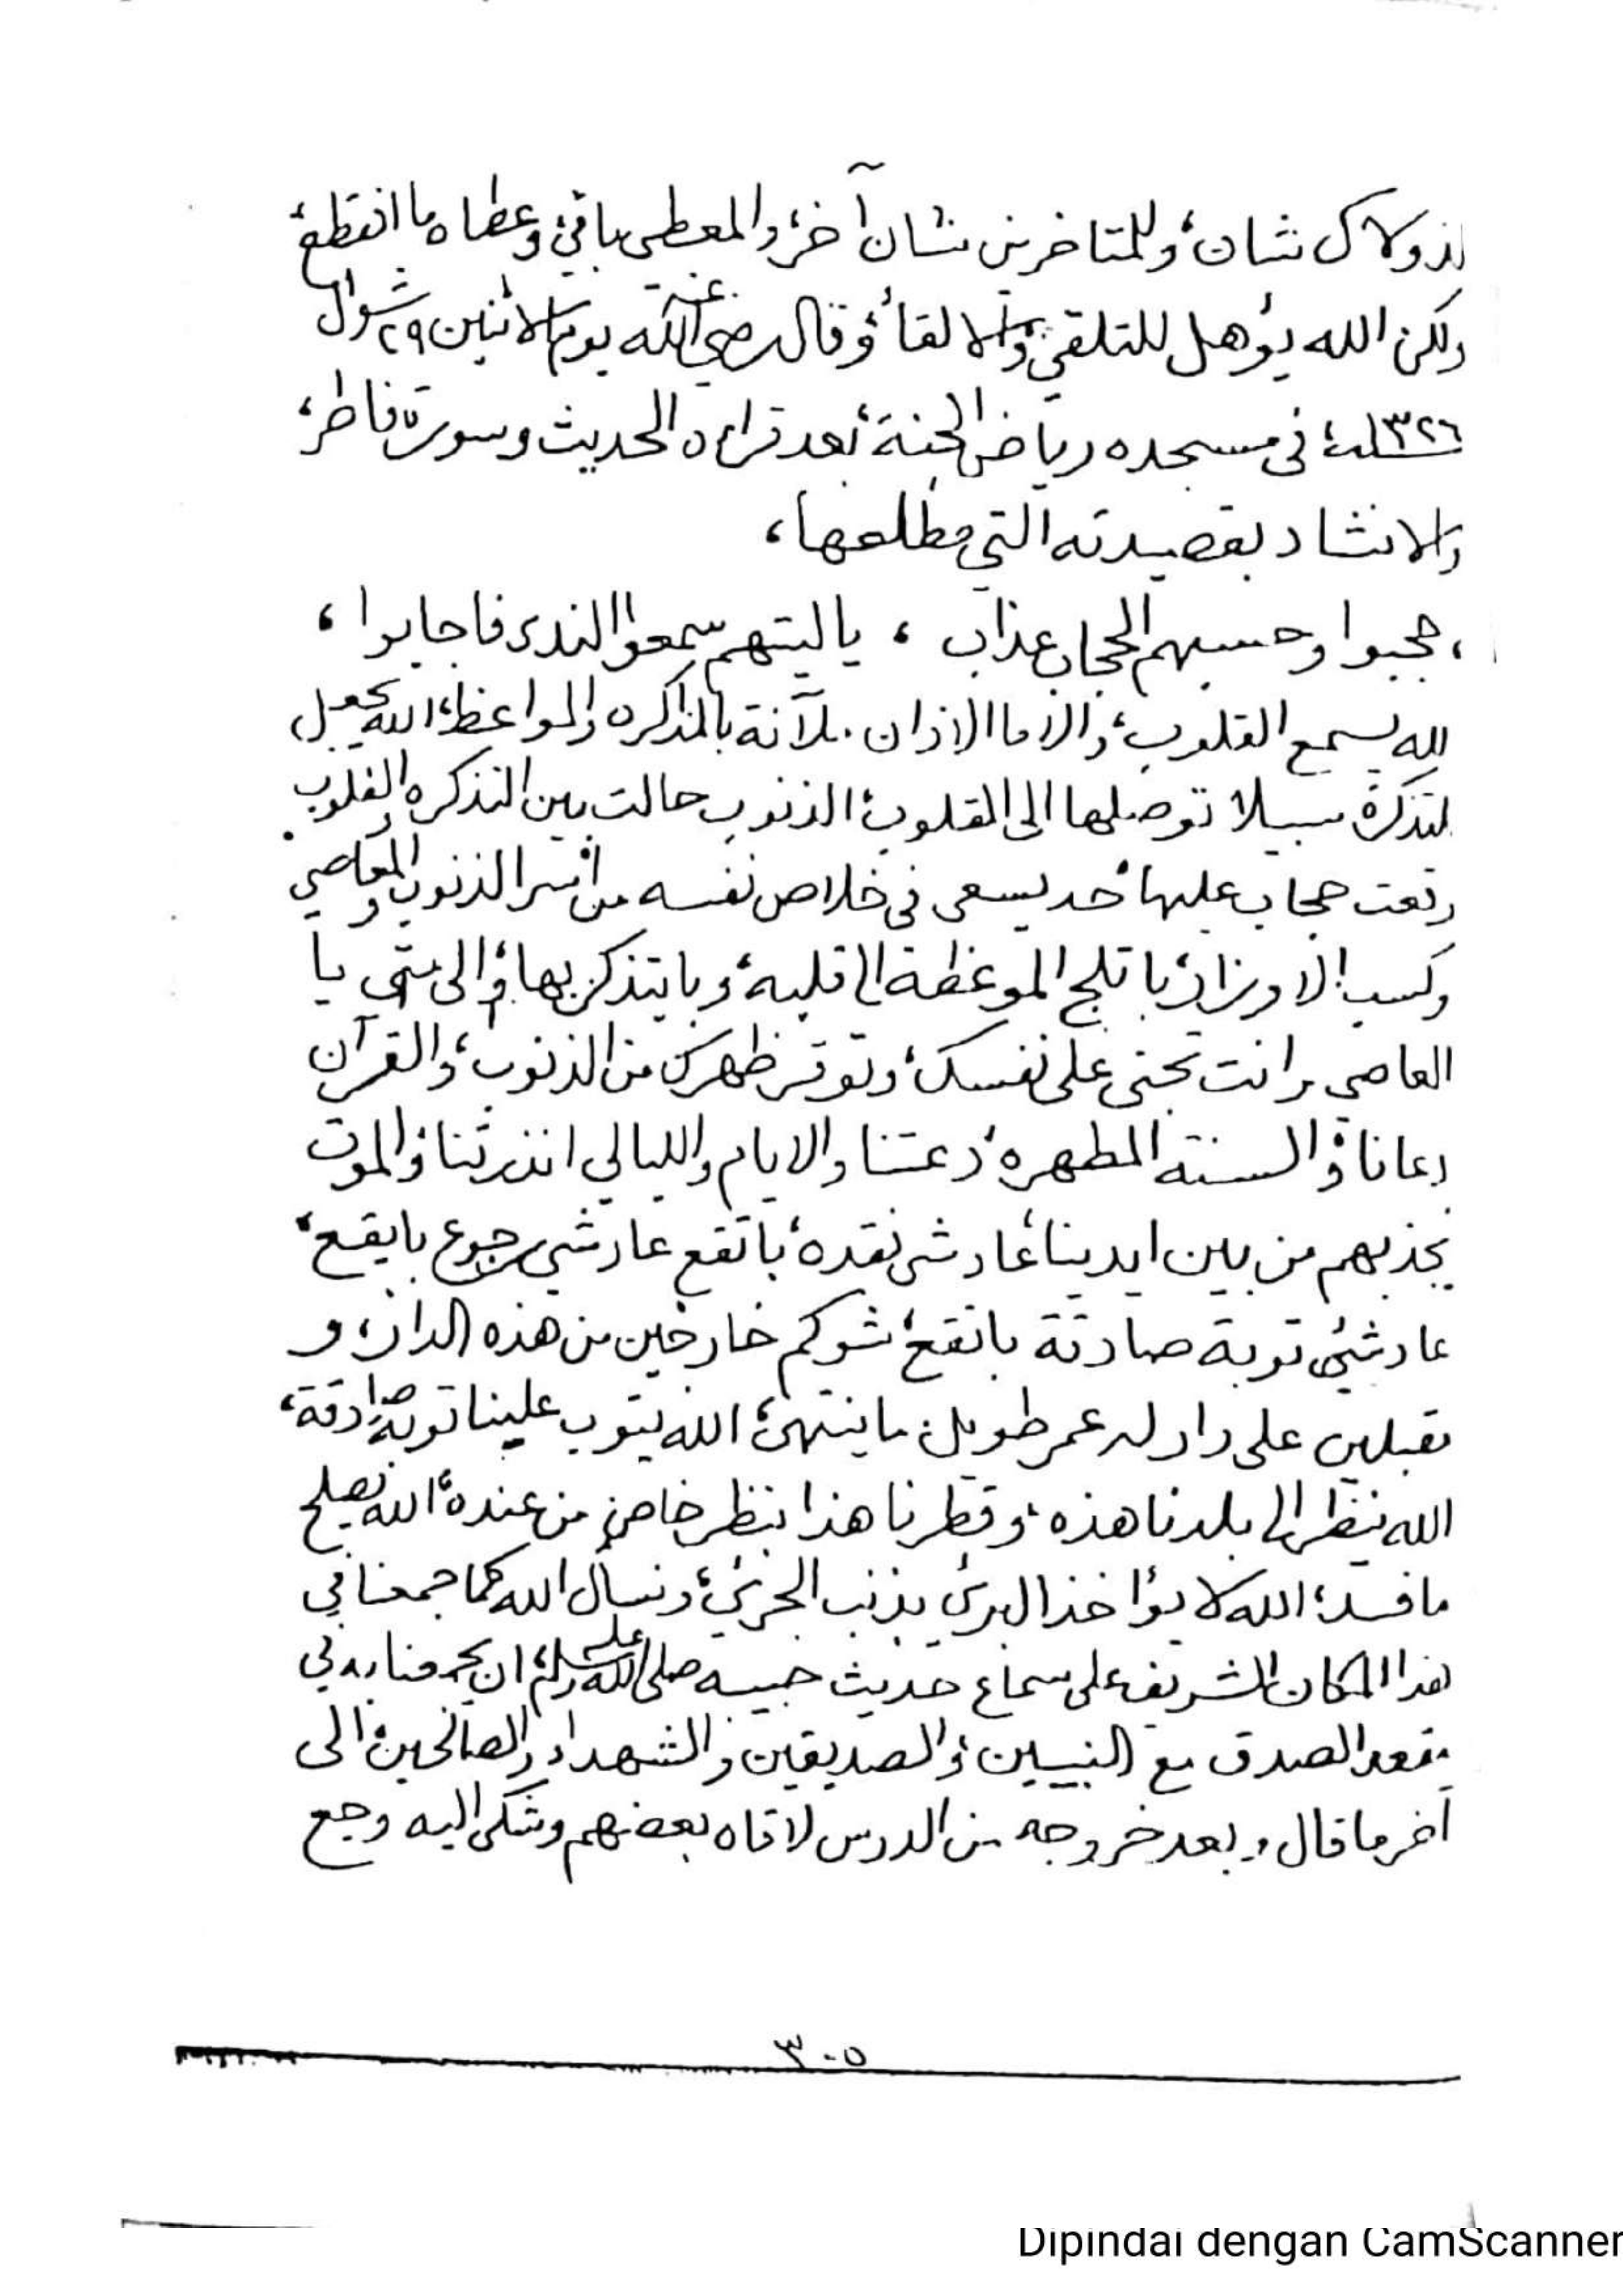 لذولاك شان، وللمتاخرين شان آخر، والمعطي باقي، وعطاه ما انقطع،
ولكن الله يؤهل للتلقي، والالقاء، وقال رضي الله عنه يوم الاثنين ٢٩ شوال
١٣٢٦ سنة، في مسجده رياض الجنة، بعد قراءه الحديث وسورة فاطر،
والانشاد بقصيدته التي مطلعها،
، حجبوا وحسبهم الحجاب عذاب ، يا ليتهم سمعوا الندى فاجابوا ،
لله يسمع القلوب، والا ما الاذان ملآنة بالمذاكره والمواعظ، الله يجعل
لتذكرة سبيلا توصلها الى القلوب، الذنوب حالت بين التذكره والقلوب
وقعت حجاب عليها، حد يسعى في خلاص نفسه من اشر الذنوب والمعاصي
وكسب الاوزار، با تلج الموعظة الى قلبه، وبا يتذكر بها، والى متى يا
العاصي وانت تجني على نفسك، وتوقر ظهرك من الذنوب، والقرآن
دعانا، والسنة المطهره، دعتنا والايام والليالي انذرتنا، والموت
يجذبهم من بين ايدينا، عاد شي نقده، باتقع عاد شي رجوع بايقع،
عاد شي، توبة صادقة باتقع، شوكم خارجين من هذه الدار، و
مقبلين على دار له عمر طويل ما ينتهي، الله يتوب علينا توبة صادقة،
الله ينظر الى بلدنا هذه، وقطرنا هذا بنظر خاص من عنده، الله يصلح
ما فسد، الله لا يؤاخذ البري بذنب الجري، ونسأل الله كما جمعنا في
هذا المكان الشريف على سماع حديث حبيبه صلى الله عليه وسلم، ان يجمعنا به في
مقعد الصدق مع النبيين، والصديقين والشهداء والصالحين، الى
آخر ما قال، وبعد خروجه من الدرس لاقاه بعضهم وشكى اليه وجع
٣٠٥
Dipindai dengan CamScanner